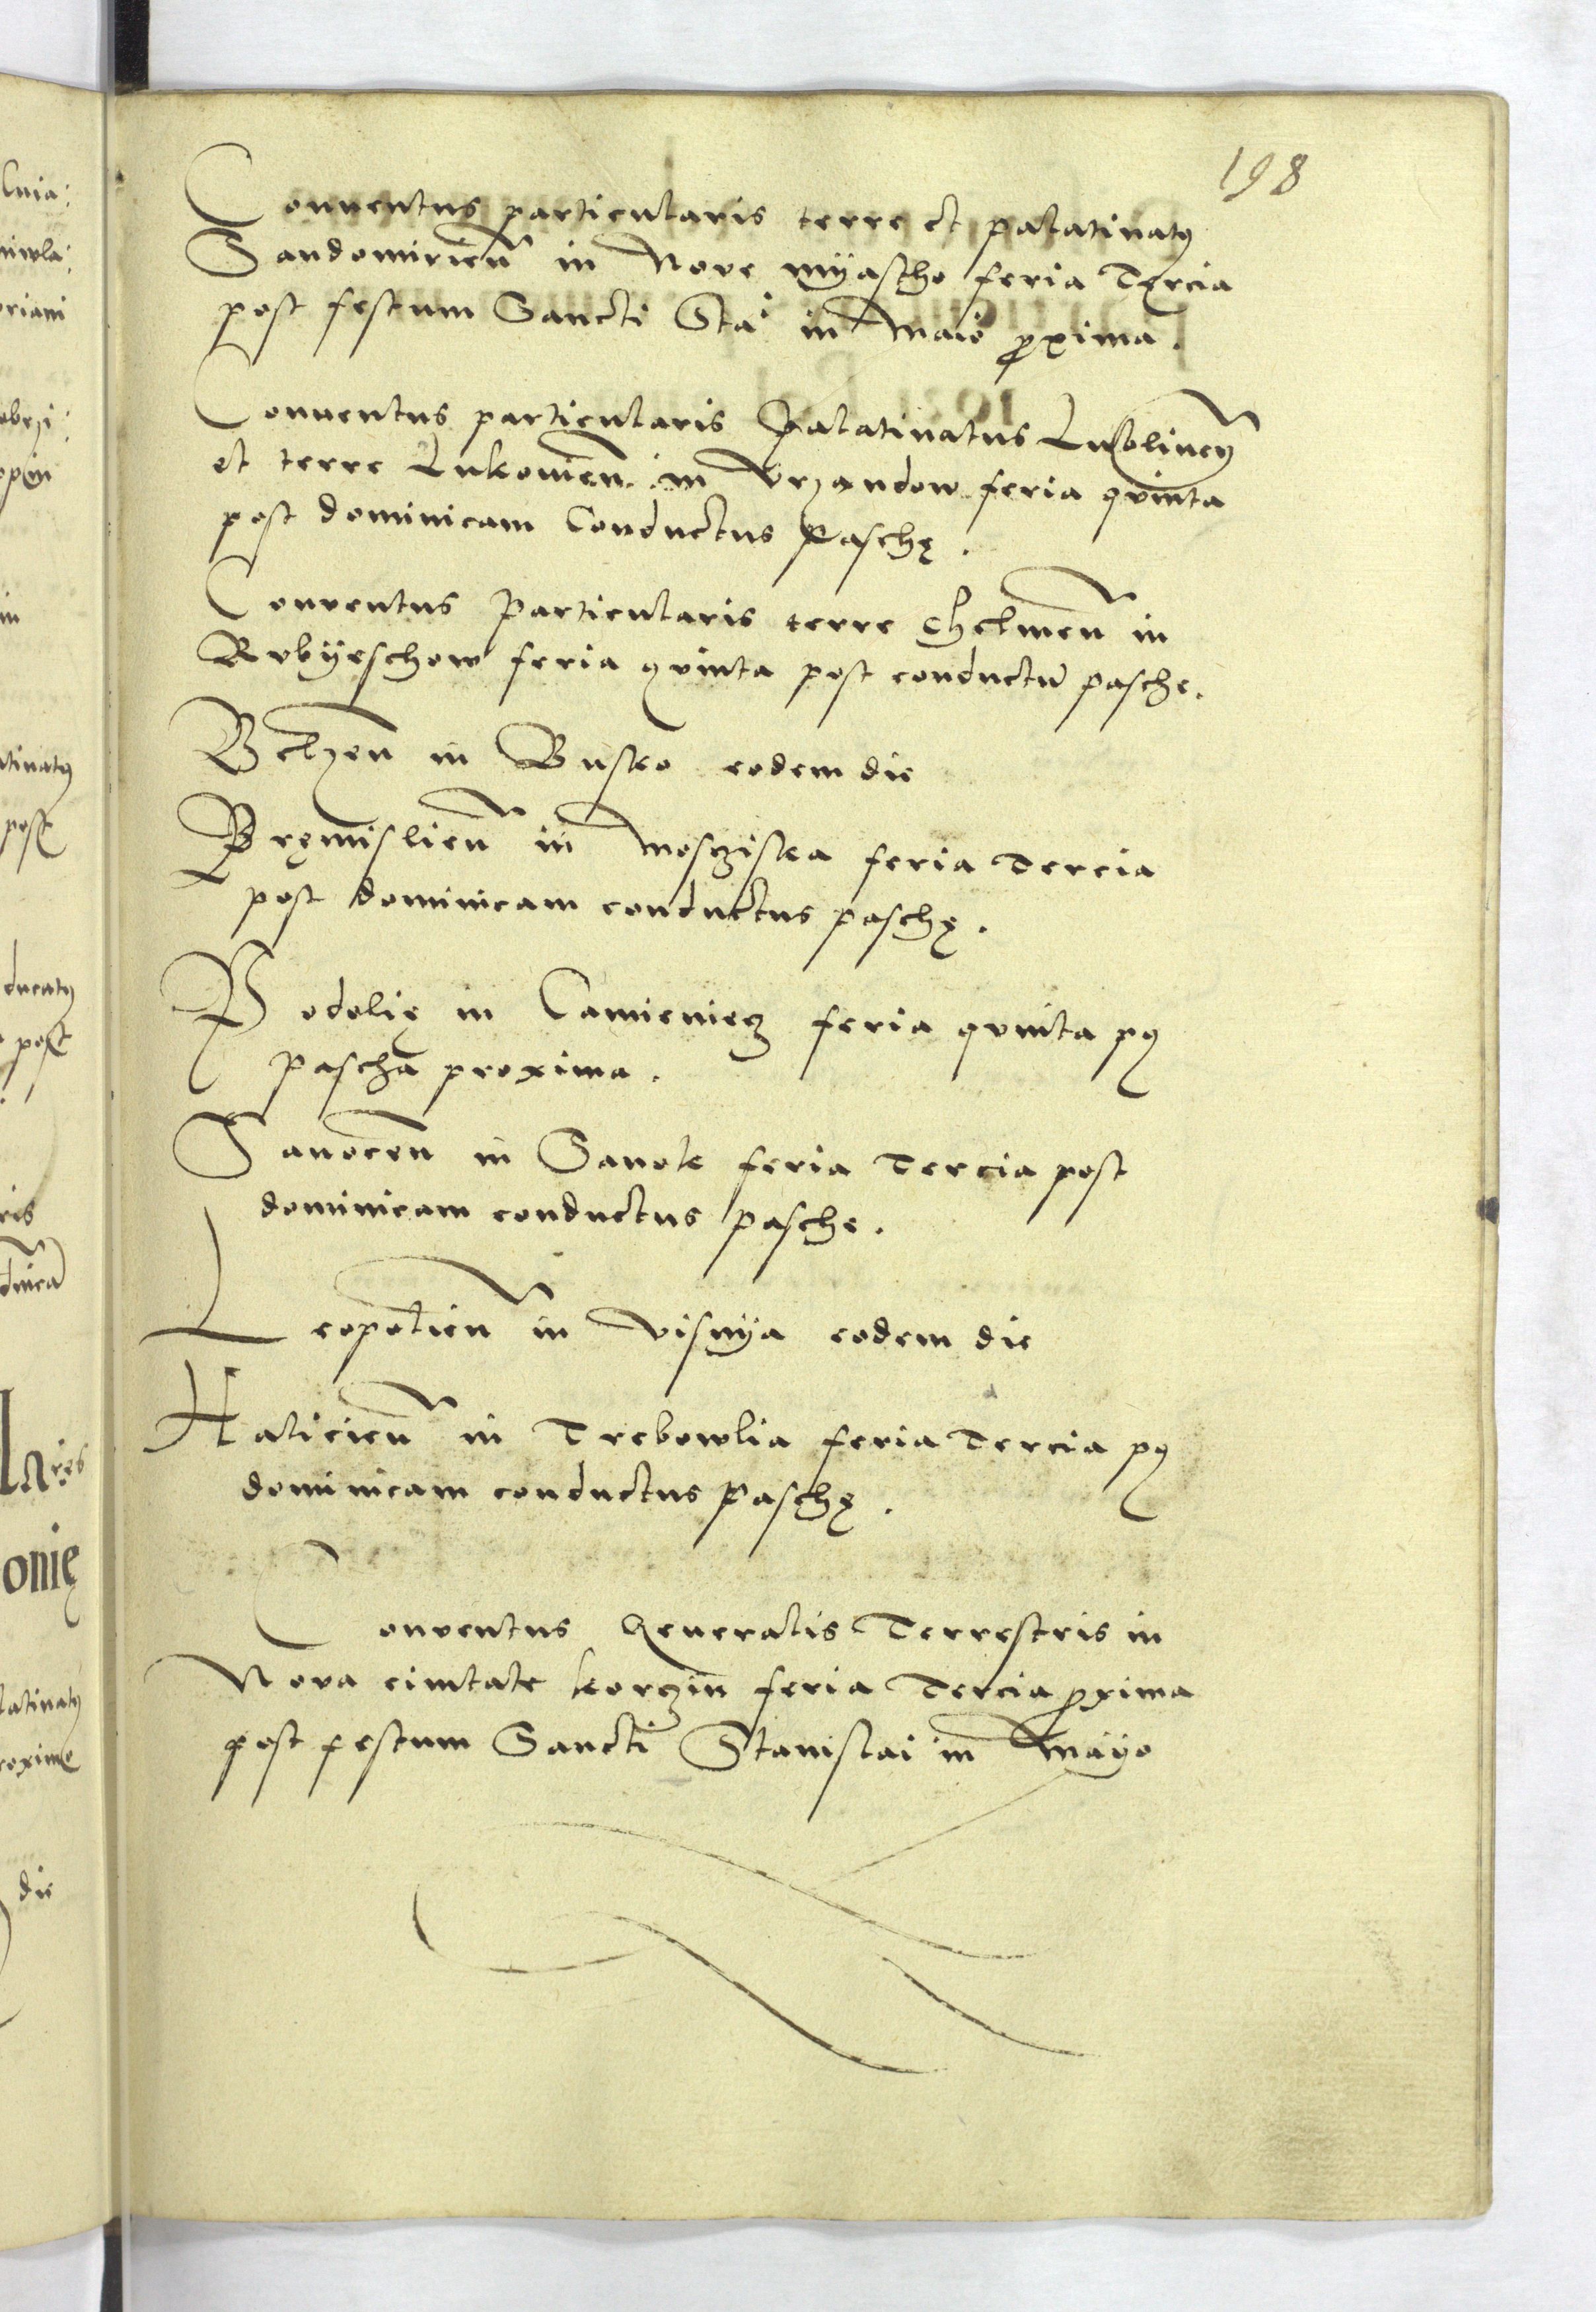 198
Conventus particularis terre et palatinatus
Sandomirien in Nove myascho feria Tercia
post festum Sancti Sta: in Maio proxima.
Conventus particularis Palatinatus Lublinen
et terre Lukovien. in Vrzandow feria quinta
post dominicam Conductus Paschę.
Conventus Particularis terre Chelmen in
Rubyeschow feria quinta post conductu pasche.
Belzen in Busko eodem die
Pręmislien in Mosczisca feria Tercia
post dominicam conductus paschę.
Podolię in Camieniecz feria quinta pq
Pascha proxima.
Sanocen in Sanok feria Tercia post
dominicam conductus pasche.
Leopolien in Visnya eodem die
Halicien in Trebowlia feria Tercia pq
dominicam conductus Paschę.
Conventus Generalis Terrestris in
Nova civitate korczin feria Tercia proxima
post festum Sancti Stanislai in Mayo